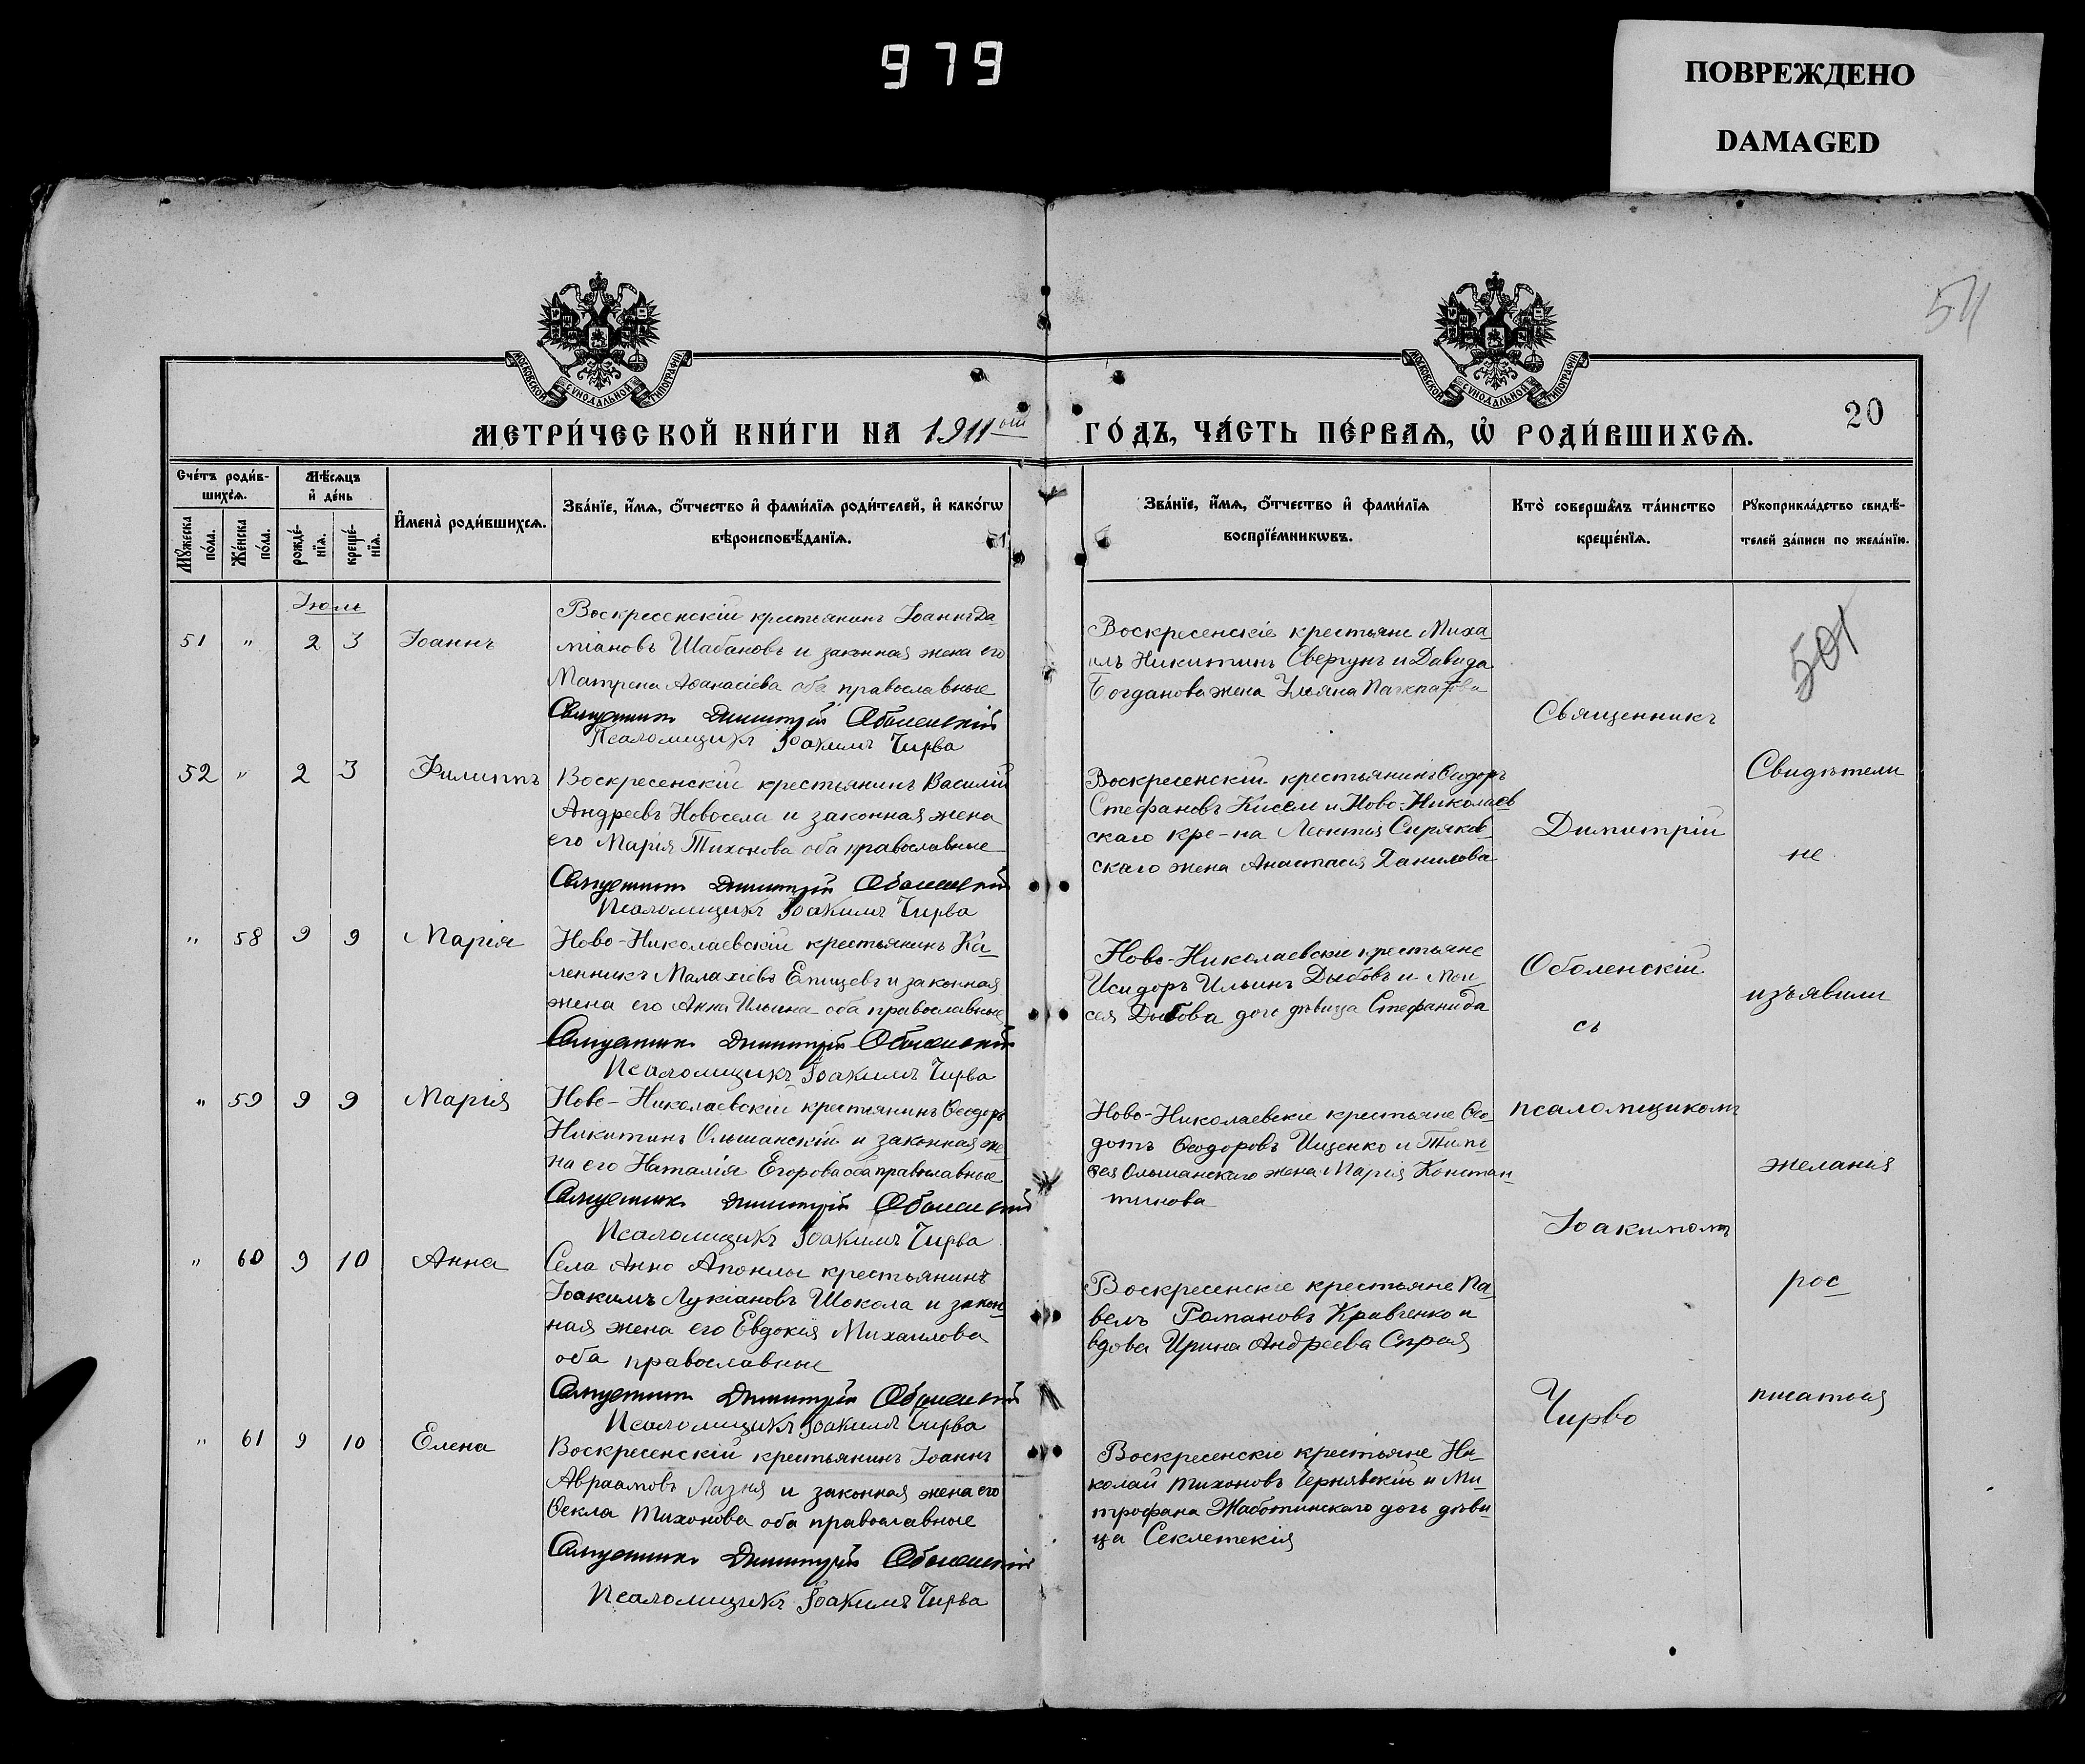 979
ПОВРЕЖДЕНО
DAMAGED
54
МОСКОВСКОЙ СѴНОДАЛЬНОЙ ТИПОГРАФІИ
МОСКОВСКОЙ СѴНОДАЛЬНОЙ ТИПОГРАФІИ
20
МЕТРИ́ЧЕСКОЙ КНИ́ГИ НА 1911ый ГО́ДЪ, ЧА́СТЬ ПЕ́РВАѦ, Ѡ҆ РОДИ́ВШИХСѦ.
Сче́тъ роди́в-
шихсѧ.
Мѣ́сѧцъ
и҆ де́нь
Мꙋ́жеска
по́ла.
Же́нска
по́ла.
рожде́-
нїѧ.
креще́-
нїѧ.
И҆мена̀ роди́вшихсѧ.
Зва́нїе, и҆́мѧ, ѻ҆́тчество и҆ фами́лїѧ роди́телей, и҆ како́гѡ
вѣроисповѣ́данїѧ.
Зва́нїе, и҆́мѧ, ѻ҆́тчество и҆ фами́лїѧ
воспрїе́мникѡвъ.
Кто̀ соверша́лъ та́инство
креще́нїѧ.
Рꙋкоприкла́дство свидѣ́-
телей за́писи по жела́нїю.
Іюль
51 " 2 3 Іоаннъ
Воскресенскій крестьянинъ Іоаннъ Да-
міановъ Шабановъ и законная жена его
Матрена Аѳанасіева оба православные
Священникъ Димитрій Оболенскій
Псаломщикъ Іоакимъ Чирва
Воскресенскіе крестьяне Миха-
илъ Никитинъ Свергунъ и Давида
Богданова жена Ульяна
501
52 " 2 3 Филиппъ
Воскресенскій крестьянинъ Василій
Андреевъ Новосела и законная жена
его Марія Тихонова оба православные
Священникъ Димитрій Оболенскій
Псаломщикъ Іоакимъ Чирва
Воскресенскій крестьянинъ Ѳеодоръ
Стефановъ Кисель и Ново-Николаев
скаго кре-на Леонтія Сиряков-
скаго жена Анастасія Данилова
" 58 9 9 Марія
Ново-Николаевскій крестьянинъ Ка-
ленникъ Малахіевъ Епищевъ и законная
жена его Анна Ильина оба православные
Священникъ Димитрій Оболенскій
Псаломщикъ Іоакимъ Чирва
Ново-Николаевскіе крестьяне
Исидоръ Ильинъ Дыбовъ и Мои-
сея Дыбова дочь дѣвица Стефанида
" 59 9 9 Марія
Ново-Николаевскій крестьянинъ Ѳеодоръ
Никитинъ Ольшанскій и законная же-
на его Наталія Егорова оба православные
Священникъ Димитрій Оболенскій
Псаломщикъ Іоакимъ Чирва
Ново-Николаевскіе крестьяне Ѳео-
дотъ Ѳеодоровъ Ищенко и
Ольшанскаго жена Марія Констан-
тинова
" 60 9 10 Анна
Села Анно крестьянинъ
Іоакимъ Лукіановъ Шокола и закон-
ная жена его Евдокія Михаилова
оба православные
Священникъ Димитрій Оболенскій
Псаломщикъ Іоакимъ Чирва
Воскресенскіе крестьяне Па-
велъ Романовъ Кравченко и
вдова Ирина Андреева Сирая
" 61 9 10 Елена
Воскресенскій крестьянинъ Іоаннъ
Авраамовъ Лазня и законная жена его
Ѳекла Тихонова оба православные
Священникъ Димитрій Оболенскій
Псаломщикъ Іоакимъ Чирва
Воскресенскіе крестьяне Ни-
колай Тихоновъ Чернявскій и Ми-
трофана Жаботинскаго дочь дѣви-
ца Секлетекія
Священникъ
Димитрій
Оболенскій
съ
псаломщикомъ
Іоакимомъ
Чирво
Свидѣтели
не
изъявили
желанія
рос
писаться